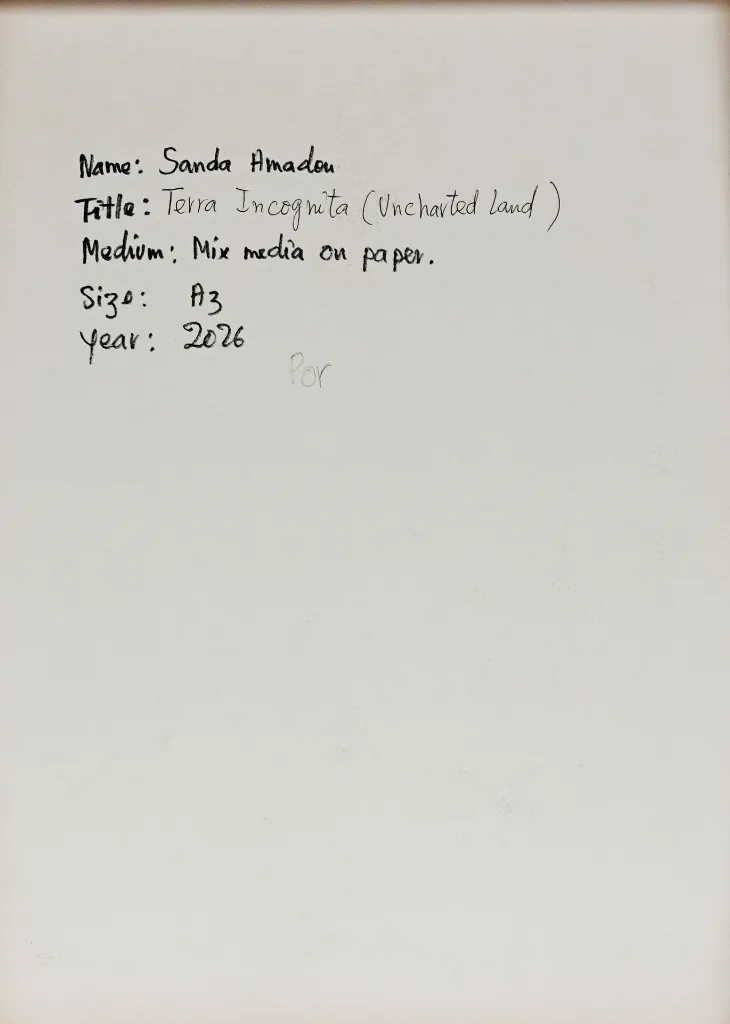 Name: Sanda Amadou
Title: Terra Incognita (Uncharted Land)
Medium: Mix media on paper.
Size: A3
Year: 2026
Por